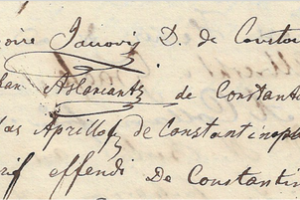 oire Janovis D. de Constan
lan Aslancantz de Constante
las Aprilloff de Constantinop
rif effendi De Constantin